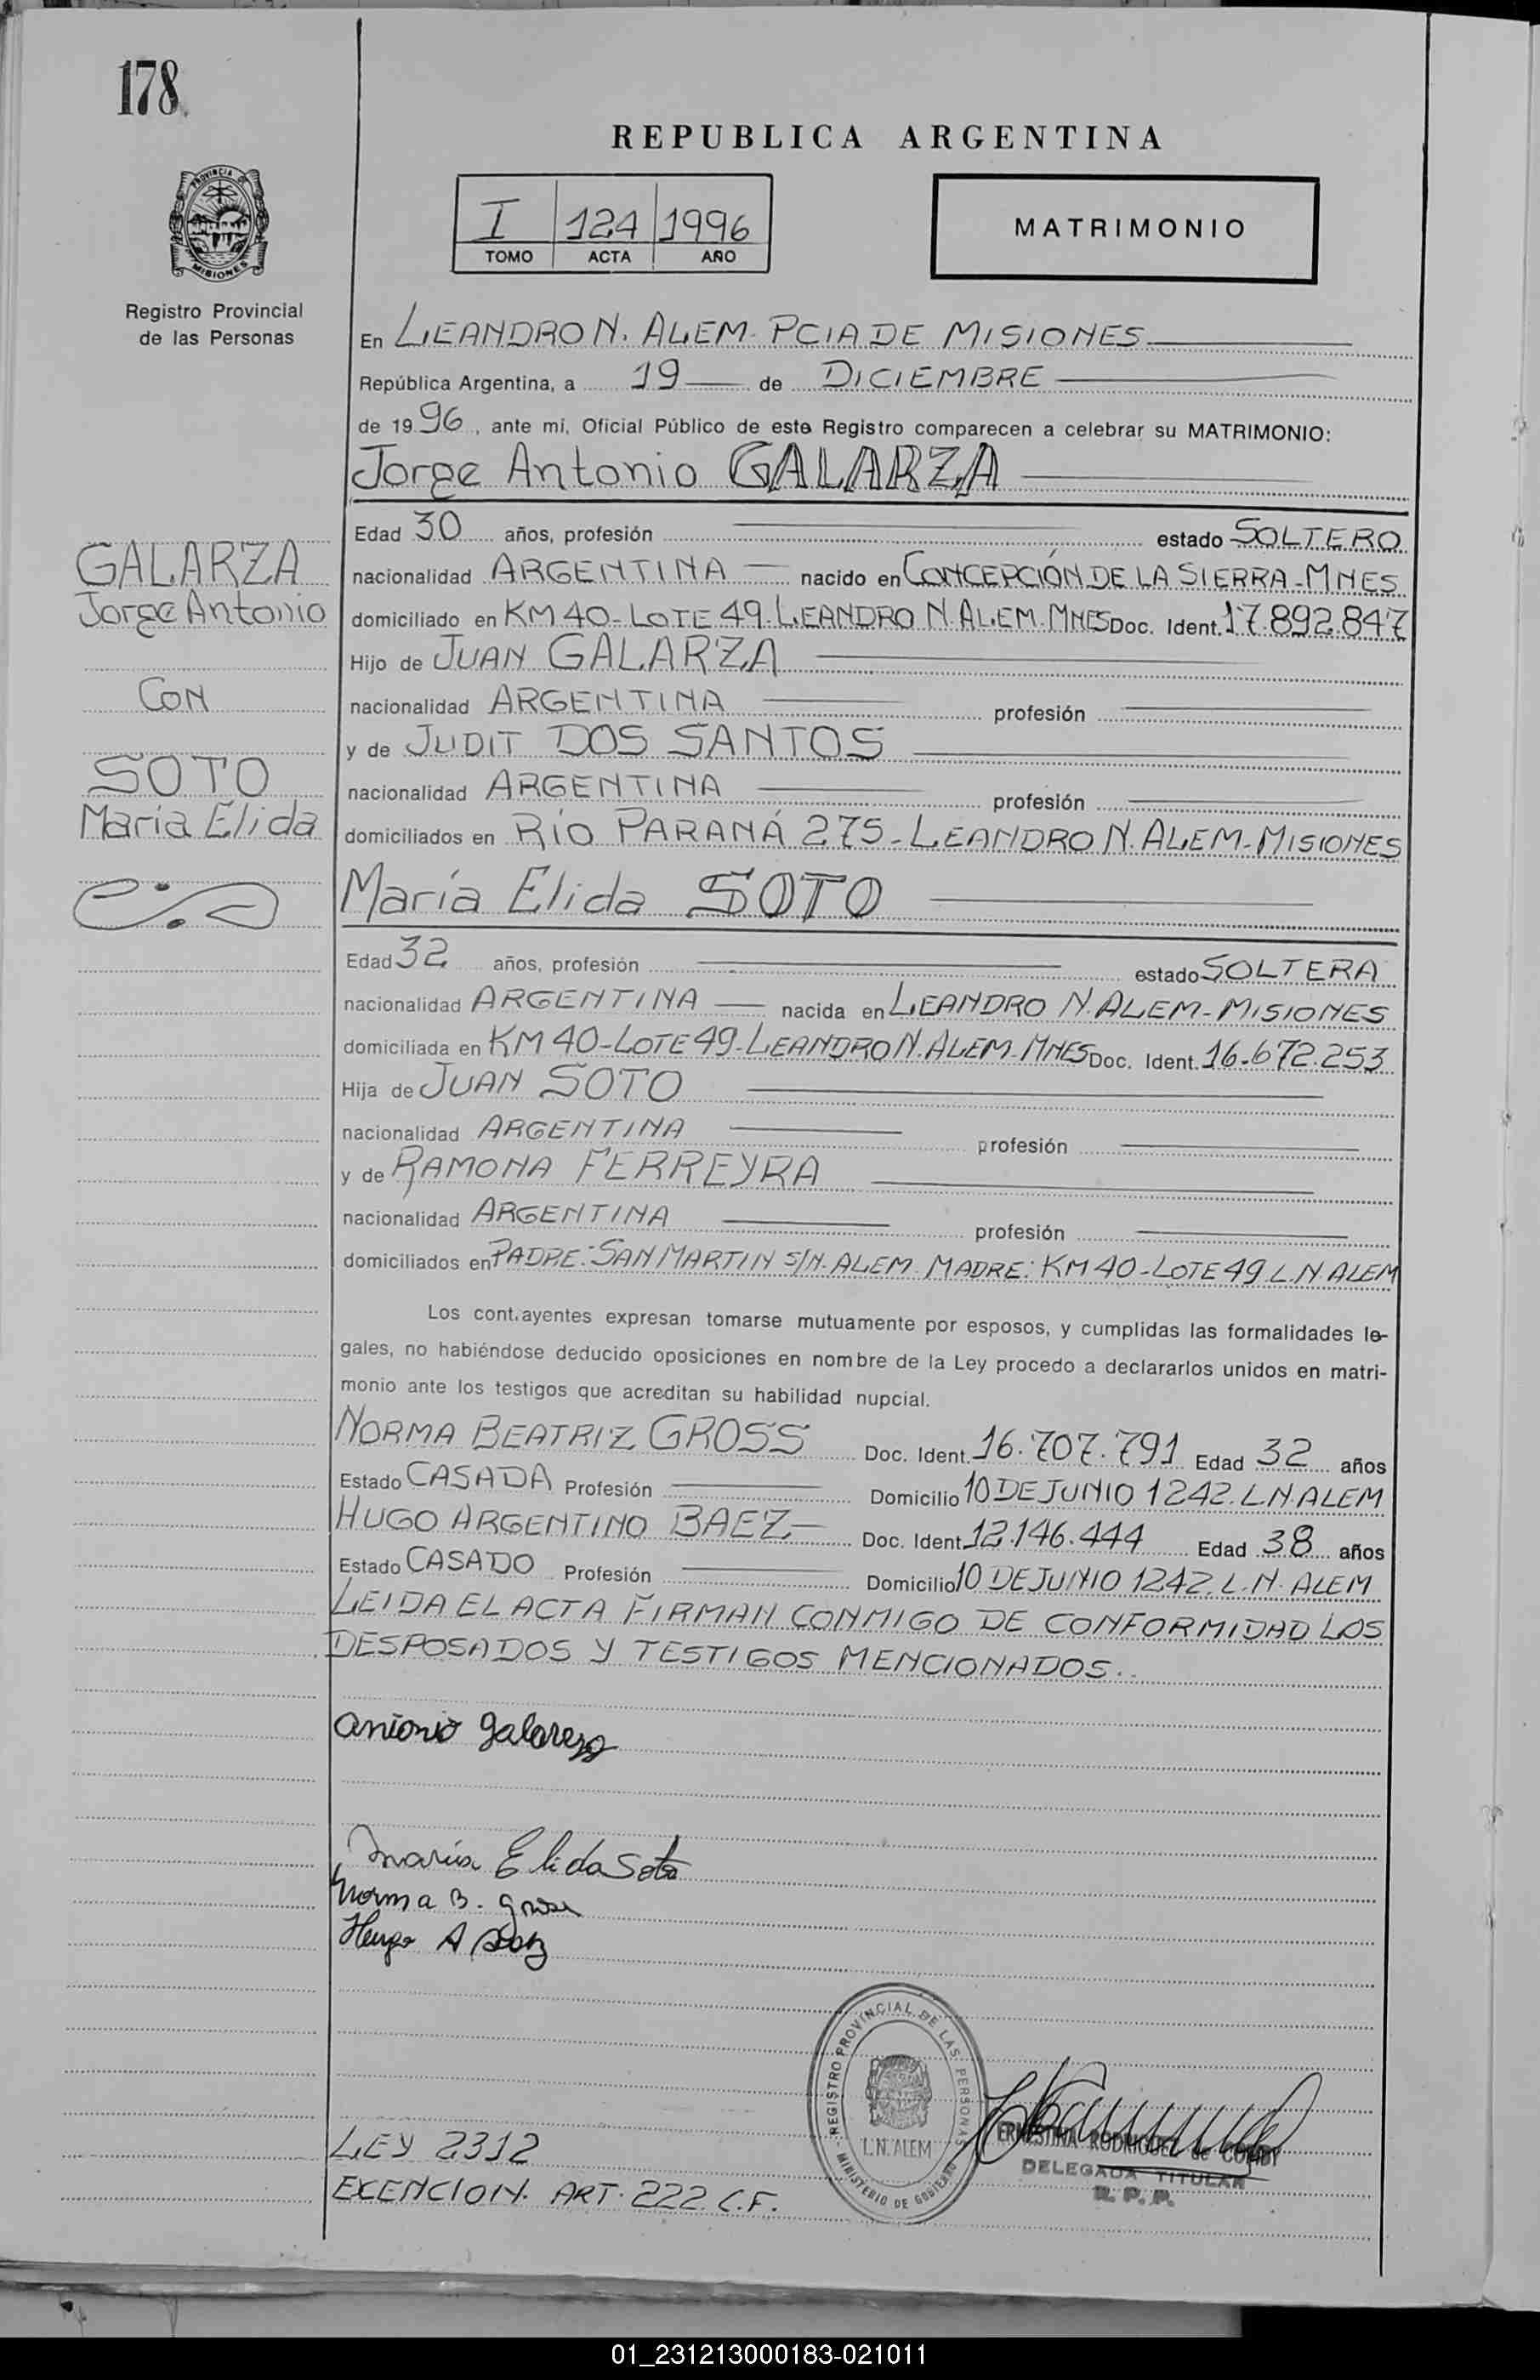 178
PROVINCIA DE MISIONES
Registro Provincial
de las Personas
REPUBLICA ARGENTINA
I 124 1996
TOMO ACTA AÑO
MATRIMONIO
En LEANDRO N. ALEM - PCIA DE MISIONES
República Argentina, a 19 de DICIEMBRE
de 1996, ante mí, Oficial Público de este Registro comparecen a celebrar su MATRIMONIO:
Jorge Antonio GALARZA
Edad 30 años, profesión estado SOLTERO
nacionalidad ARGENTINA nacido en CONCEPCIÓN DE LA SIERRA - MNES
domiciliado en KM 40 - LOTE 49 - LEANDRO N. ALEM - MNES Doc. Ident. 17.892.847
Hijo de JUAN GALARZA
nacionalidad ARGENTINA profesión
y de JUDIT DOS SANTOS
nacionalidad ARGENTINA profesión
domiciliados en RÍO PARANÁ 275 - LEANDRO N. ALEM - MISIONES
GALARZA
Jorge Antonio
CON
SOTO
María Elida
María Elida SOTO
Edad 32 años, profesión estado SOLTERA
nacionalidad ARGENTINA nacida en LEANDRO N. ALEM - MISIONES
domiciliada en KM 40 - LOTE 49 - LEANDRO N. ALEM - MNES Doc. Ident. 16.672.253
Hija de JUAN SOTO
nacionalidad ARGENTINA profesión
y de RAMONA FERREYRA
nacionalidad ARGENTINA profesión
domiciliados en PADRE: SAN MARTIN S/N. ALEM MADRE: KM 40 - LOTE 49 L.N. ALEM
Los cont.ayentes expresan tomarse mutuamente por esposos, y cumplidas las formalidades le-
gales, no habiéndose deducido oposiciones en nombre de la Ley procedo a declararlos unidos en matri-
monio ante los testigos que acreditan su habilidad nupcial.
NORMA BEATRIZ GROSS Doc. Ident. 16.707.791 Edad 32 años
Estado CASADA Profesión Domicilio 10 DE JUNIO 1242. L.N. ALEM
HUGO ARGENTINO BAEZ Doc. Ident. 12.146.444 Edad 38 años
Estado CASADO Profesión Domicilio 10 DE JUNIO 1242. L.N. ALEM
LEIDA EL ACTA FIRMAN CONMIGO DE CONFORMIDAD LOS
DESPOSADOS Y TESTIGOS MENCIONADOS..
Antonio Galarza
María Elida Soto
Norma B. Gross
Hugo A Baez
REGISTRO PROVINCIAL DE LAS PERSONAS
L.N. ALEM
MINISTERIO DE GOBIERNO
ERNESTINA RODRIGUEZ de
DELEGADA TITULAR
R. P. P.
LEY 2312
EXENCION. ART. 222 C.F.
01_231213000183-021011